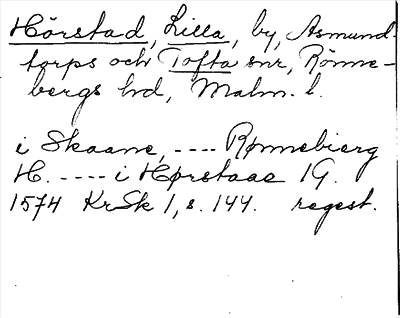 Hörstad, Lilla, by, Asmund-
torps och Tofta snr, Rönne-
bergs hd, Malm. l.
i Skaane, ---- Rønnebierg
H. ----- i Hørstaae 1G.
1574 KrSk 1, s. 144. regest.